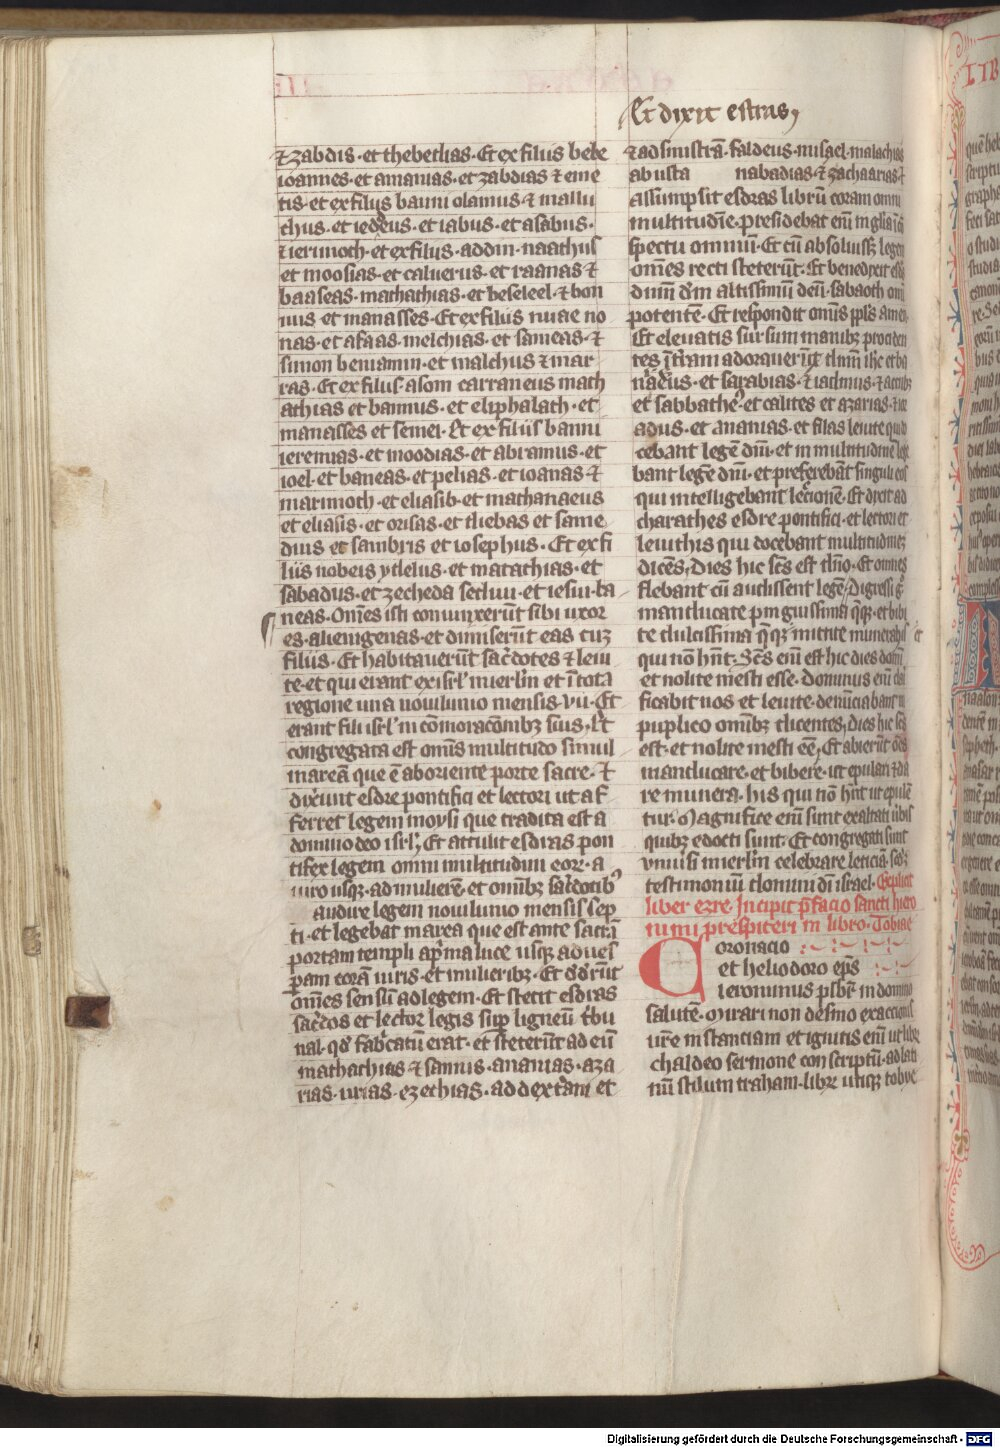 Et dixit estras
⁊ zabdis · et thebethias · Et ex filiis bebe
ioannes · et amanias · et zabdias ⁊ eme
tis · et ex filiis banni olamus · ⁊ mallu
chus · et ieddeus · et iabus · et asabus ·
⁊ ierimoth · et ex filiis · addin · naathus
et moosias · et caluerus · et raanas ⁊
baaseas · mathathias · et beseleel · ⁊ bon
nus · et manasses · Et ex filiis nuae no
nas · et afaas · melchias · et sameas · ⁊
simon beniamin · et malchus ⁊ mar
ras · Et ex filiis asom carraneus math
athias et bannus · et eliphalath · et
manasses et semei · Et ex filiis banni
ieremias · et moodias · et abramus · et
ioel · et baneas · et pelias · et ioanas · ⁊
marimoth · et eliasib · et mathanaeus
et eliasis · et orisas · et dielas et same
dius et sambris et iosephus · Et ex fi
liis nobeis ydelus · et matathias · et
sabadus · et zecheda sedmi · et iesm · ba
neas · Om̄es isti coniunxerūt sibi uxor
es · alienigenas · et dimiserūt eas cuz
filiis · Et habitauerūt sac̄dotes ⁊ leui
te · et qui erant ex isrl' in ierl̄m et ī tota
regione una nouilunio mensis · vii · Et
erant fili isrl' in cōmoracōnibꝫ suis · Et
congregata est om̄is multitudo simul
in areā que ē ab oriente porte sacre · Et
dixerunt esdre pontifici et lectori ut af
ferret legem moysi que tradita est a
domino deo isrl' · Et attulit esdras pon
tifex legem omni multitudini eor̄ · a
uiro usqꝫ · ad mulierē · et omībꝫ sac̄dotibꝰ
audire legem nouilunio mensis sep
ti · et legebat in area que est ante sacrā
portam templi a p̄ma luce usqꝫ ad ues
peram corā uiris · et mulieribꝫ · Et dederūt
om̄es sensū ad legem · Et stetit esdras
sac̄dos et lector legis sup ligneū t̄bu
nal · qd' fabricatū erat · et steterūt ad eū
mathathias ⁊ samus · ananias · aza
rias · urias · ezechias · ad dext̄am et
⁊ ad sinistrā · faldeus · misael · malachias
abusta nabadias · ⁊ zachaarias · ⁊
assūmpsit esdras librū coram omni
multitudīe · presidebat enī in glīa ī cō
spectu omniū · Et cū absoluissꝫ legem
om̄es recti steterūt · Et benedixit esdras
dn̄m dm̄ altissimū deū · sabaoth omī
potentē · Et respondit om̄is ppl's amen ·
Et eleuatis sursum manibꝫ prociden
tes ī t̄ram adorauerūt dn̄m ihc et ba
naeus · et sarabias · ⁊ iadmus · ⁊ accubꝫ
et sabbatheꝰ · et calites et azarias · ⁊ io
adus · et ananias · et filas leuite qui do
cebant legē dn̄i · et in multitudine lege
bant legē dn̄i · et preferebāt singuli eos
qui intelligebant lectionē · Et dixit ad
charathes esdre pontifici · et lectori et
leuithis qui docebant multitudinez
dicēs, Dies hic sc̄s est dn̄o · Et omnes
flebant cū audissent legē, Digressi gͦ
manducate p̄inguissima q̄qꝫ · et bibi
te dulcissima q̄qꝫ mittite munera his et
qui nō hn̄t · Sc̄s enī est hic dies domī
et nolite mesti esse · Dominus enī cla
ficabit uos et leuite · denūciabant in
puplico omībꝫ dicentes, Dies hic sc̄s
est · et nolite mesti eē, Et abierūt oēs
manducare · et bibere · ut epulari ⁊ da
re munera · his qui nō hn̄t ut epulē
tur · Magnifice enī sunt exaltati ūbis
quibꝫ edocti sunt · Et congregati sunt
vniuersi in ierl̄m celebrare leticiā · scdꝫ
testimoniū domini dī israel · Explicit
liber ezre · Incipit p̄facio sancti hiero
nimi prespiteri in libro · Tobiae
Coronacio
et heliodoro ep̄s
ieronimus p̄sbr̄ in domino
salutē · Mirari non desino exactionis
ūre instantiam et ignitis enī ut libr̄
chaldeo sermone conscriptū · ad lati
nū stilum traham · libr̄ utiqꝫ tobye
Digitalisierung gefördert durch die Deutsche Forschungsgemeinschaft - DFG